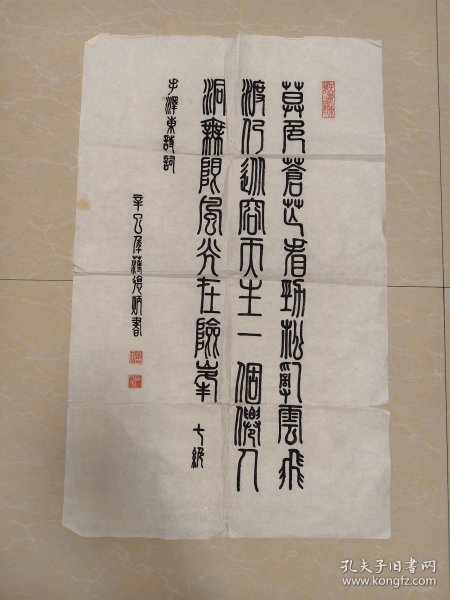 莫色蒼茫看勁松亂雲飛
渡仍從容天生一個僊人
洞無限風光在險峯 七絶
毛澤東詩詞
辛乙年
書
孔夫子旧书网
www.kongfz.com